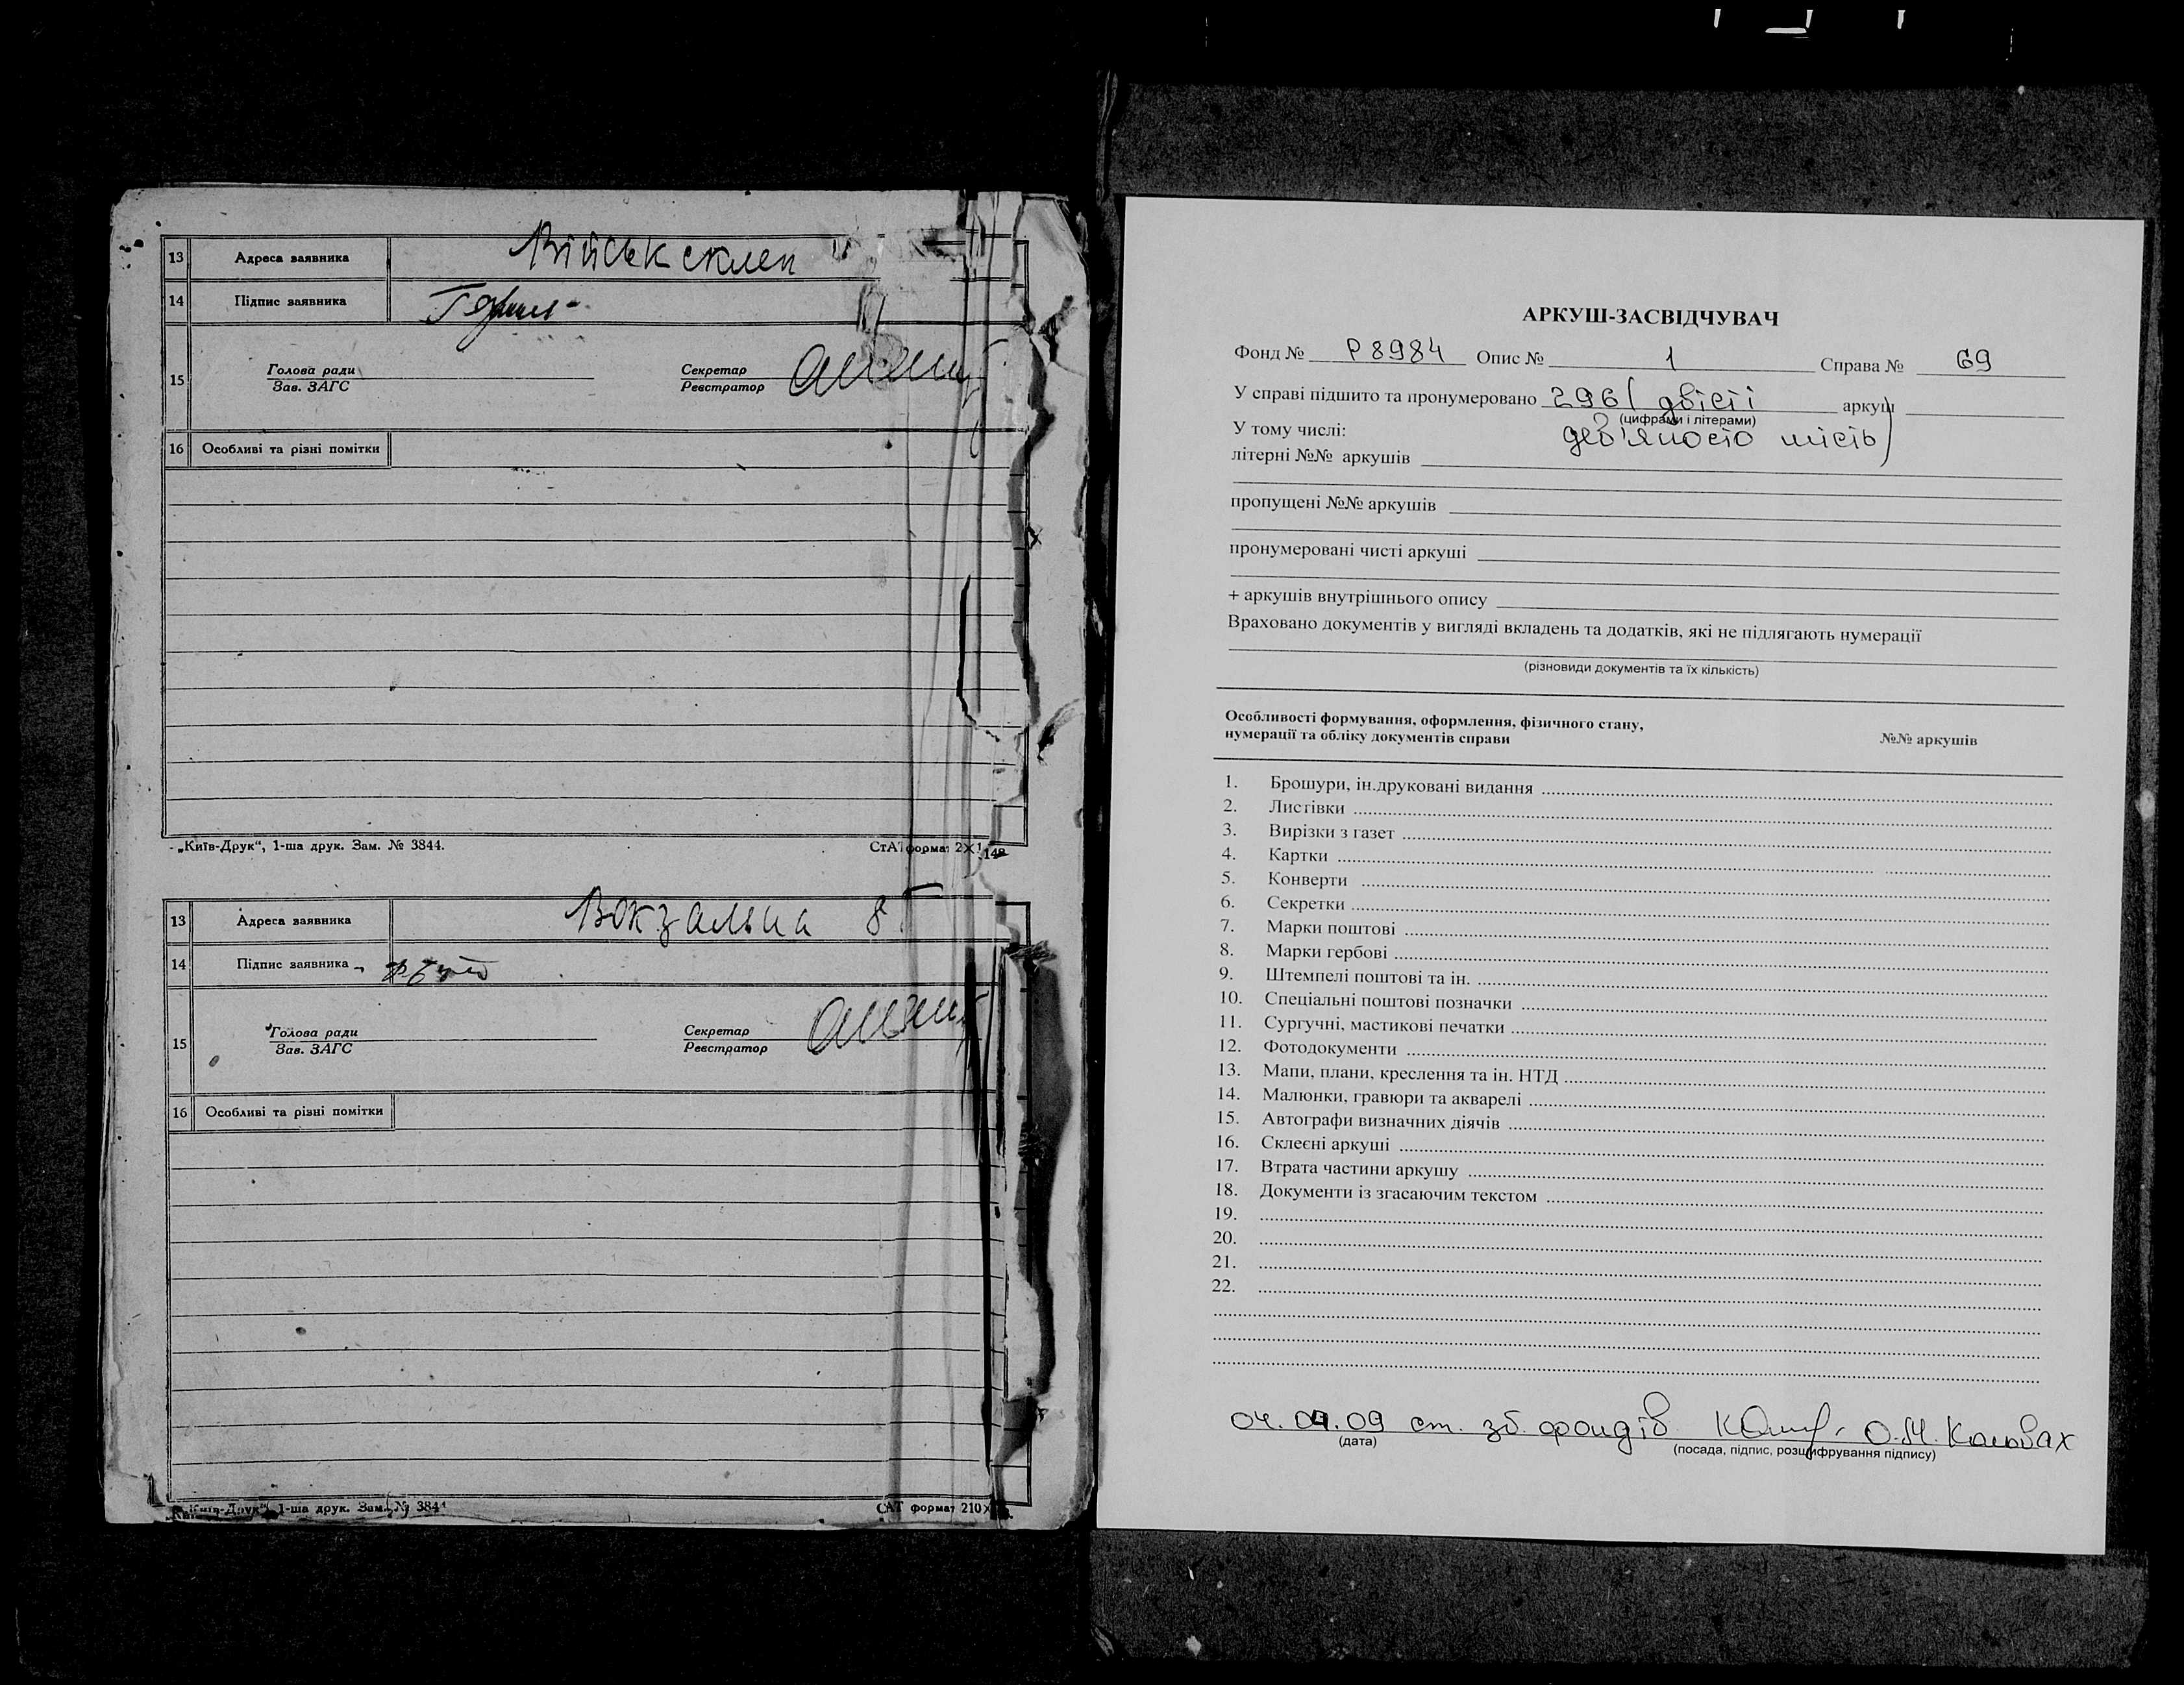 13 Адреса заявника Військсклеп
14 Підпис заявника
15 Голова ради Секретар
Зав. ЗАГС Реєстратор
16 Особливі та різні помітки
„Київ-Друк“, 1-ша друк. Зам. № 3844. СтАТ формат
13 Адреса заявника Вокзальна 8
14 Підпис заявника
15 Голова ради Секретар
Зав. ЗАГС Реєстратор
16 Особливі та різні помітки
„Київ-Друк“, 1-ша друк. Зам. № 3844 САТ формат 210×
АРКУШ-ЗАСВІДЧУВАЧ
Фонд № Р8984 Опис № 1 Справа № 69
У справі підшито та пронумеровано 296 (двісті аркуш
(цифрами і літерами)
У тому числі: дев'яносто шість)
літерні №№ аркушів
пропущені №№ аркушів
пронумеровані чисті аркуші
+ аркушів внутрішнього опису
Враховано документів у вигляді вкладень та додатків, які не підлягають нумерації
(різновиди документів та їх кількість)
Особливості формування, оформлення, фізичного стану,
нумерації та обліку документів справи №№ аркушів
1. Брошури, ін.друковані видання
2. Листівки
3. Вирізки з газет
4. Картки
5. Конверти
6. Секретки
7. Марки поштові
8. Марки гербові
9. Штемпелі поштові та ін.
10. Спеціальні поштові позначки
11. Сургучні, мастикові печатки
12. Фотодокументи
13. Мапи, плани, креслення та ін. НТД
14. Малюнки, гравюри та акварелі
15. Автографи визначних діячів
16. Склеєні аркуші
17. Втрата частини аркушу
18. Документи із згасаючим текстом
19.
20.
21.
22.
04.04.09 ст. зб. фондів О.М. Коновах
(дата) (посада, підпис, розшифрування підпису)